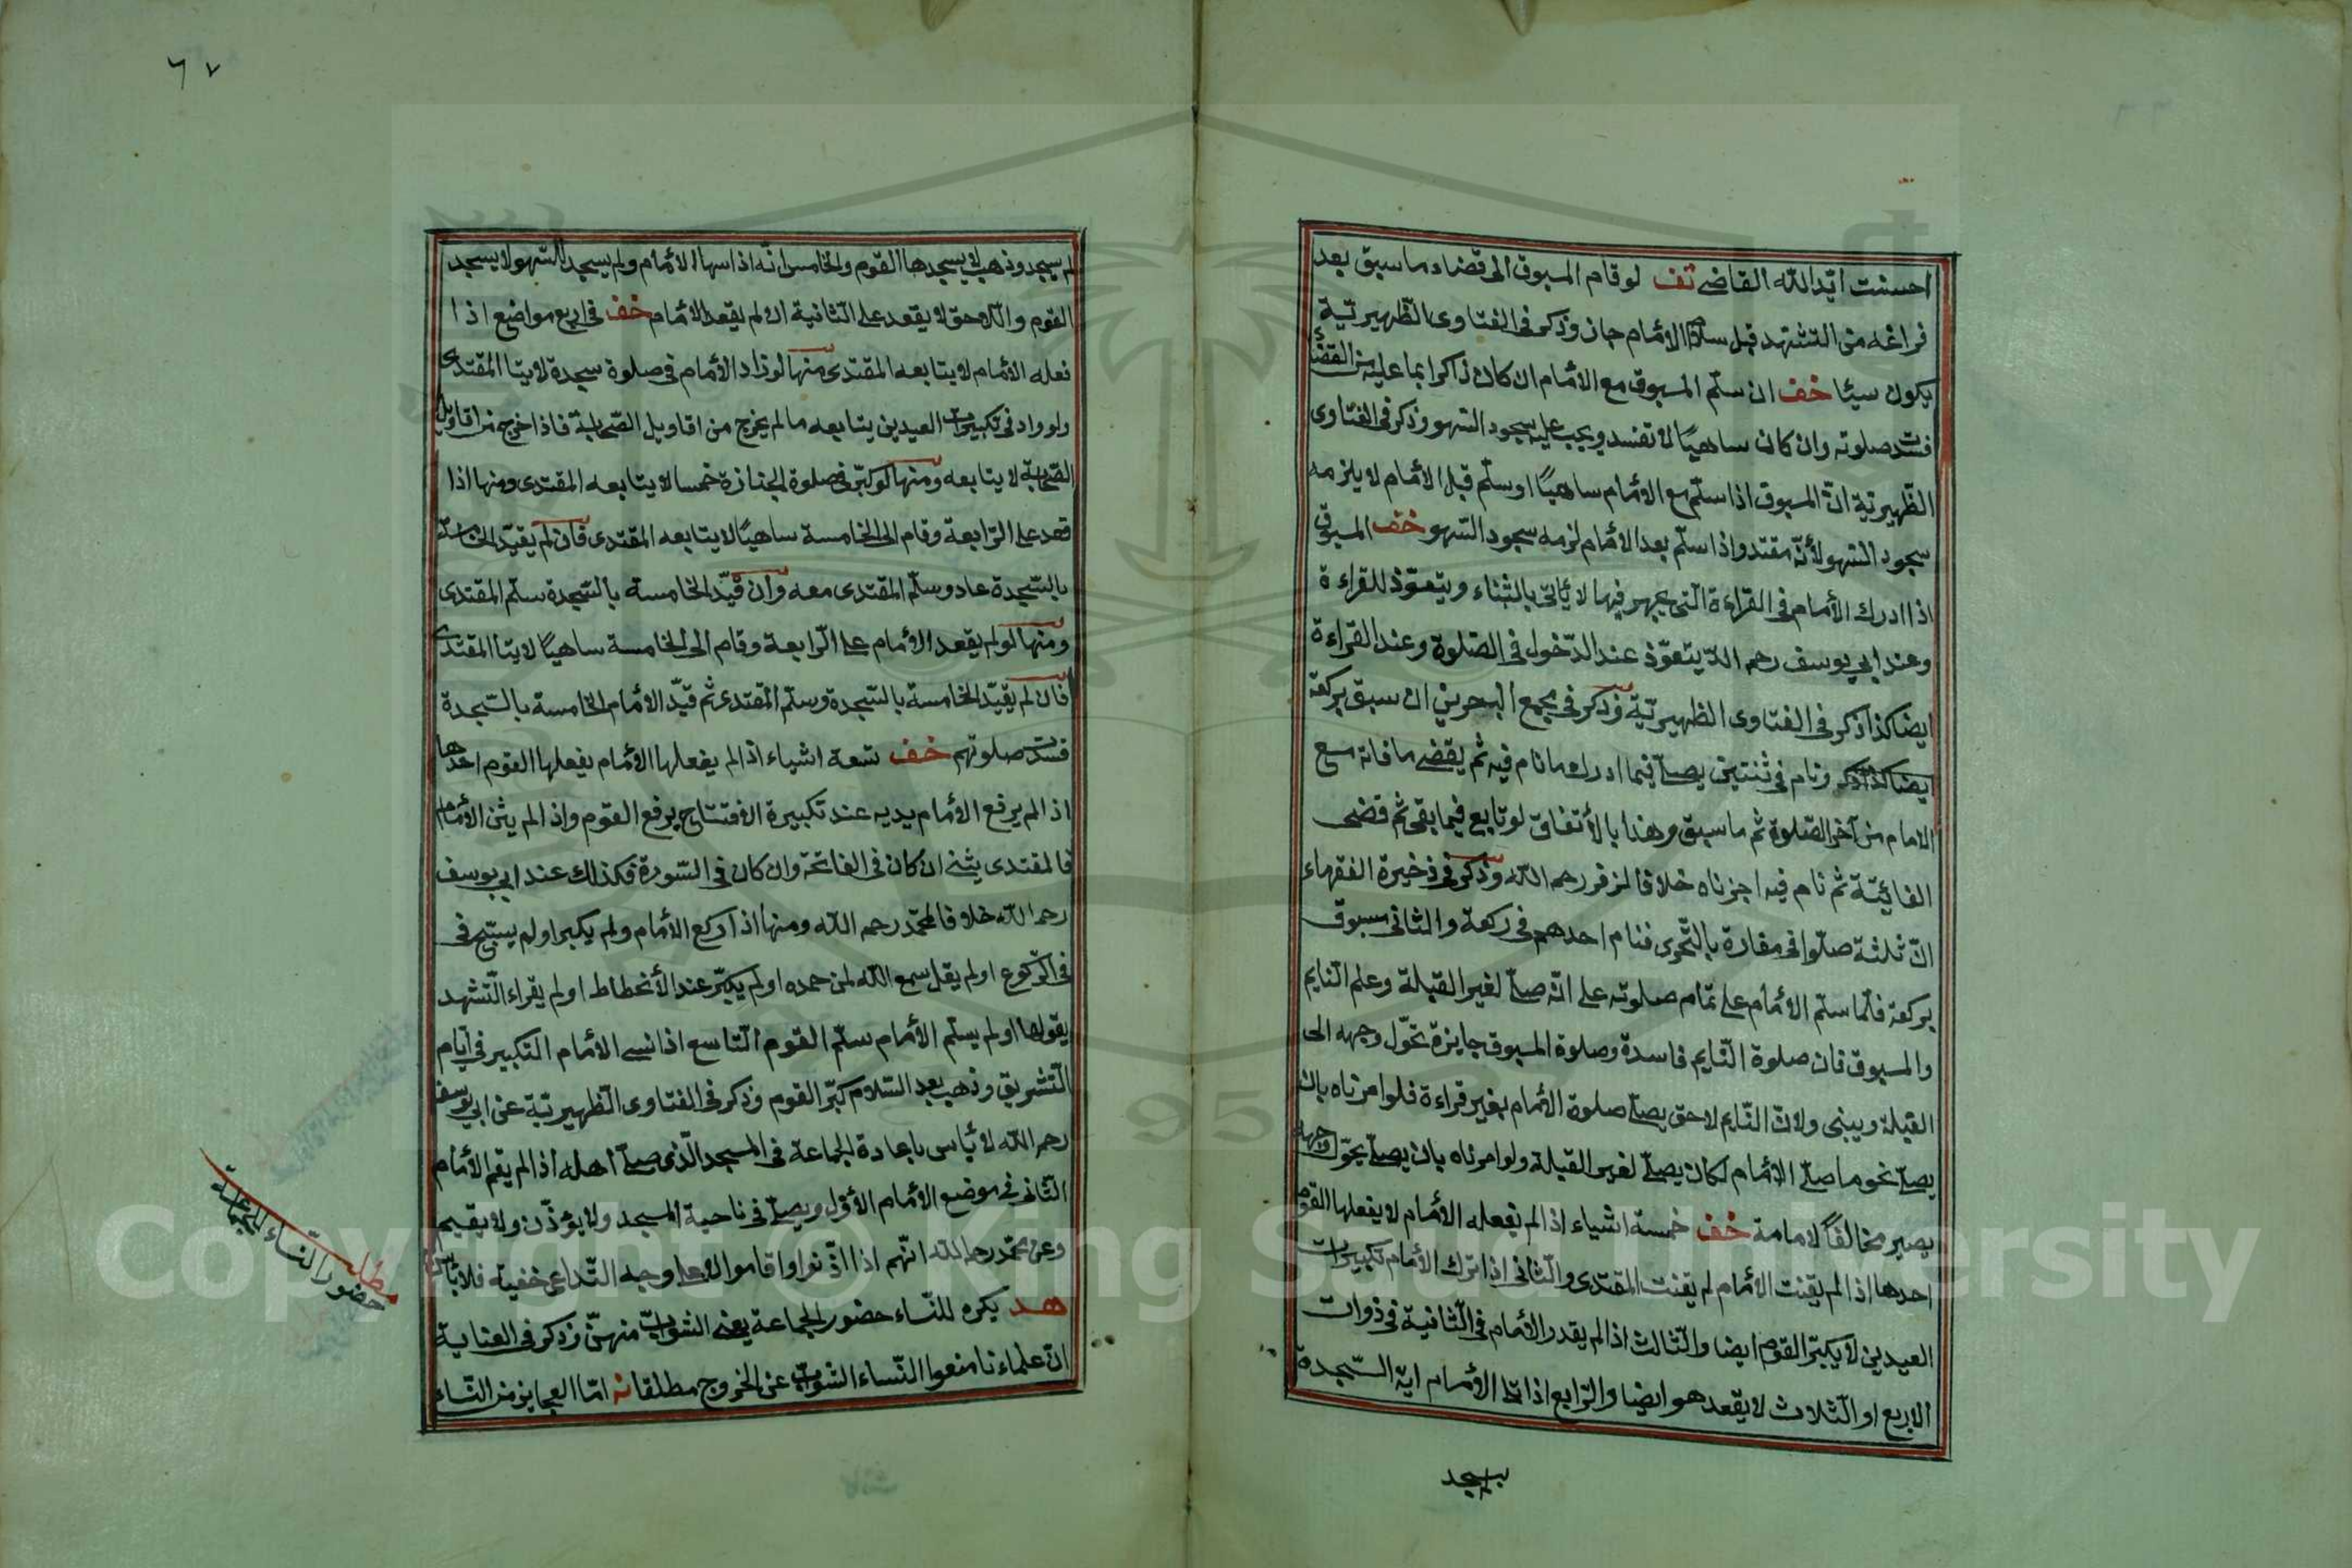 احسنت ايّد الله القاضى تف لو قام المسبوق الى قضاء ما سبق بعد
فراغه من التشهد قبل سلام الأمام جاز وذكر فى الفتاوى الظهيرتية
يكون سيئا خف ان سلّم المسبوق مع الأمام ان كان ذاكرا بما عليه من القضاء
فسدت صلوته وان كان ساهيًا لا تفسد ويجب عليه سجود السّهو وذكر فى الفتاوى
الظّهيرتية انّ المسبوق اذا سلّم مع الأمام ساهيًا او سلّم قبل الأمام لا يلزمه
سجود السّهو لأنّه مقتد واذا سلّم بعد الأمام لزمه سجود السّهو خف المسبوق
اذا ادرك الأمام فى القراءة الّتى يجهر فيها لا يأتى بالثّناء ويتعوّذ للقراءة
وعند ابي يوسف رحمه اللّه يتعوّذ عند الدّخول فى الصّلوة وعند القراءة
ايضا كذا ذكر فى الفتاوى الظهيرتيّة وذكر فى مجمع البحرين ان سبق بركعة
ايضا كذا ذكر ونام فى ثنتين يصلّى فيما ادرك ما نام فيه ثم يقضى ما فاته مع
الامام من آخر الصّلوة ثم ما سبق وهذا بالأتفاق لو تابع فيما بقى ثم قضى
الفائيتة ثم نام فيه اجزناه خلافا لزفر رحمه اللّه وذكر فى ذخيرة الفقهاء
انّ ثلثة صلّوا فى مفازة بالتّحرى فنام احدهم فى ركعة والثانى سبوق
بركعة فلمّا سلّم الأمام على تمام صلوته علم انّه صلّى لغير القبلة وعلم النّايم
والمسبوق فان صلوة النّايم فاسدة وصلوة المسبوق جايزة تحوّل وجهه الى
القبلة ويبنى ولانّ النّايم لاحق يصلّى صلوة الأمام بغير قراءة فلو امرناه بان
يصلّى نحو ما صلّى الأمام لكان يصلّى لغير القبلة ولو امرناه بان يصلّى يحوّل وجهه
يصير مخالفًا لامامة خف خمسة اشياء اذا لم يفعله الأمام لا يفعلها القوم
احدها اذا لم يقنت الأمام لم يقنت المقتدى والثّانى اذا ترك الأمام تكبيرات
العيدين لا يكبّر القوم ايضا والثّالث اذا لم يقعد الأمام فى الثّانية فى ذوات
الاربع او الثّلاث لا يقعد هو ايضا والرّابع اذا تلا الأمام اية السّجدة
يسجد
٦٧
لم يسجد وذهب لا يسجدها القوم والخامس انّه اذا سها الأمام ولم يسجد السّهو لا يسجد
القوم واللّاحق لا يقعد على الثّانية ان لم يقعد الأمام خف فى اربع مواضع اذا
فعله الأمام لا يتابعه المقتدى منها لو زاد الأمام فى صلوة سجدة لا يتا المقتدى
ولو زاد فى تكبيرات العيدين يتابعه ما لم يخرج من اقاويل الصّحابة فاذا خرج من اقاويل
الصّحابة لا يتابعه ومنها لو كبّر فى صلوة الجنازة خمسا لا يتابعه المقتدى ومنها اذا
قعد على الرّابعة وقام الى الخامسة ساهيًا لا يتابعه المقتدى فان لم يقيّد الخامسة
بالسّجدة عاد وسلّم المقتدى معه وان قيّد الخامسة بالسّجدة سلّم المقتدى
ومنها لو لم يقعد الأمام على الرّابعة وقام الى الخامسة ساهيًا لا يتا المقتدى
فان لم يقيّد الخامسة بالسّجدة وسلّم المقتدى ثم قيّد الأمام الخامسة بالسّجدة
فسدت صلوتهم خف تسعة اشياء اذا لم يفعلها الأمام يفعلها القوم احدها
اذا لم يرفع الأمام يديه عند تكبيرة الافتتاح يرفع القوم واذا لم يثن الأمام
فالمقتدى يثنى ان كان فى الفاتحة وان كان فى السّورة فكذلك عند ابي يوسف
رحمه اللّه خلافا لمحمّد رحمه اللّه ومنها اذا ركع الأمام ولم يكبر او لم يسبّح فى
فى الرّكوع او لم يقل سمع اللّه لمن حمده او لم يكبّر عند الأنحطاط او لم يقراء التّشهد
يقولها او لم يسلّم الأمام سلّم القوم التّاسع اذا نسى الأمام التّكبير فى ايّام
التّشريق وذهب بعد السّلام كبّر القوم وذكر فى الفتاوى الظّهيرتية عن ابي يوسف
رحمه اللّه لا بأس باعادة الجماعة فى المسجد الّذى صلّى اهله اذا لم يقم الأمام
الثّانى فى موضع الأمام الأوّل ويصلّى فى ناحية المسجد ولا يؤذّن ولا يقيم
وعن محمّد رحمه اللّه انّهم اذا اذّنوا واقاموا لا على وجه التّداعى خفية فلا بأس
هد يكره للنّساء حضور الجماعة يعنى الشوابّ منهنّ وذكر فى العناية
انّ علماءنا منعوا النّساء الشّوابّ عن الخروج مطلقا نه امّا العجايز من النّساء
مطلب
حضور النّساء الى الجماعة
Copyright © King Saud University